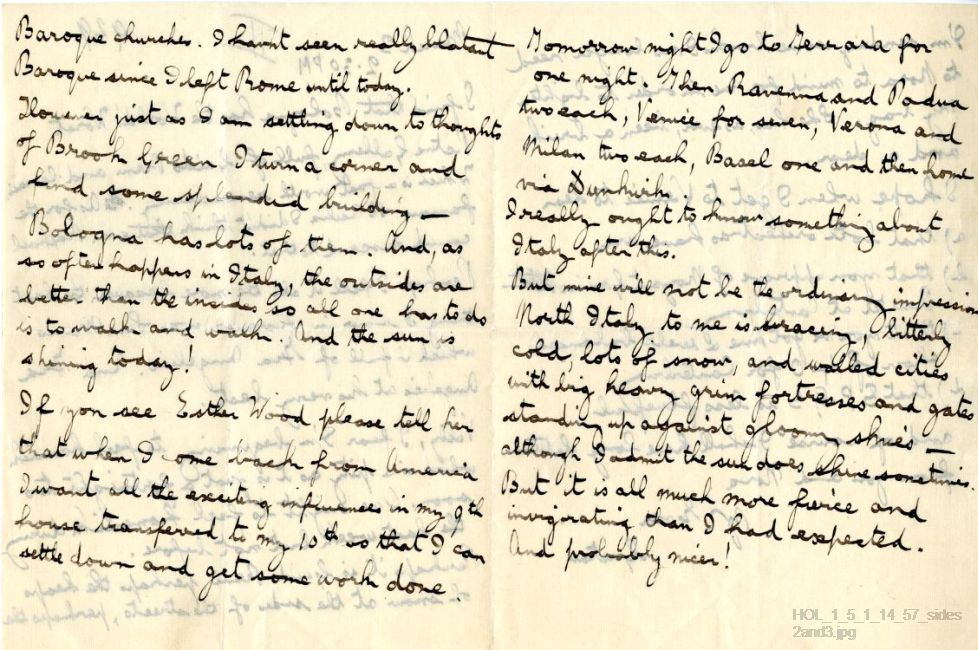 Baroque churches. I havn't seen really blatant
Baroque since I left Rome until today.
However just as I am settling down to thoughts
of Brook Green I turn a corner and
find some splendid building —
Bologna has lots of them. And, as
so often happens in Italy, the outsides are
better than the insides so all one has to do
is to walk and walk. And the sun is
shining today!
If you see Esther Wood please tell her
that when I come back from America
I want all the exciting influences in my 9th
house transferred to my 10th so that I can
settle down and get some work done.
Tomorrow night I go to Ferrara for
one night. Then Ravenna and Padua
two each, Venice for seven, Verona and
Milan two each, Basel one and then home
via Dunkirk.
I really ought to know something about
Italy after this.
But mine will not be the ordinary impression
North Italy to me is bracing, bitterly
cold, lots of snow, and walled cities
with big heavy grim fortresses and gates
standing up against gloomy skies —
although I admit the sun does shine sometimes.
But it is all much more fierce and
invigorating than I had expected.
And probably nicer!
HOL_1_5_1_14_57_sides
2and3.jpg